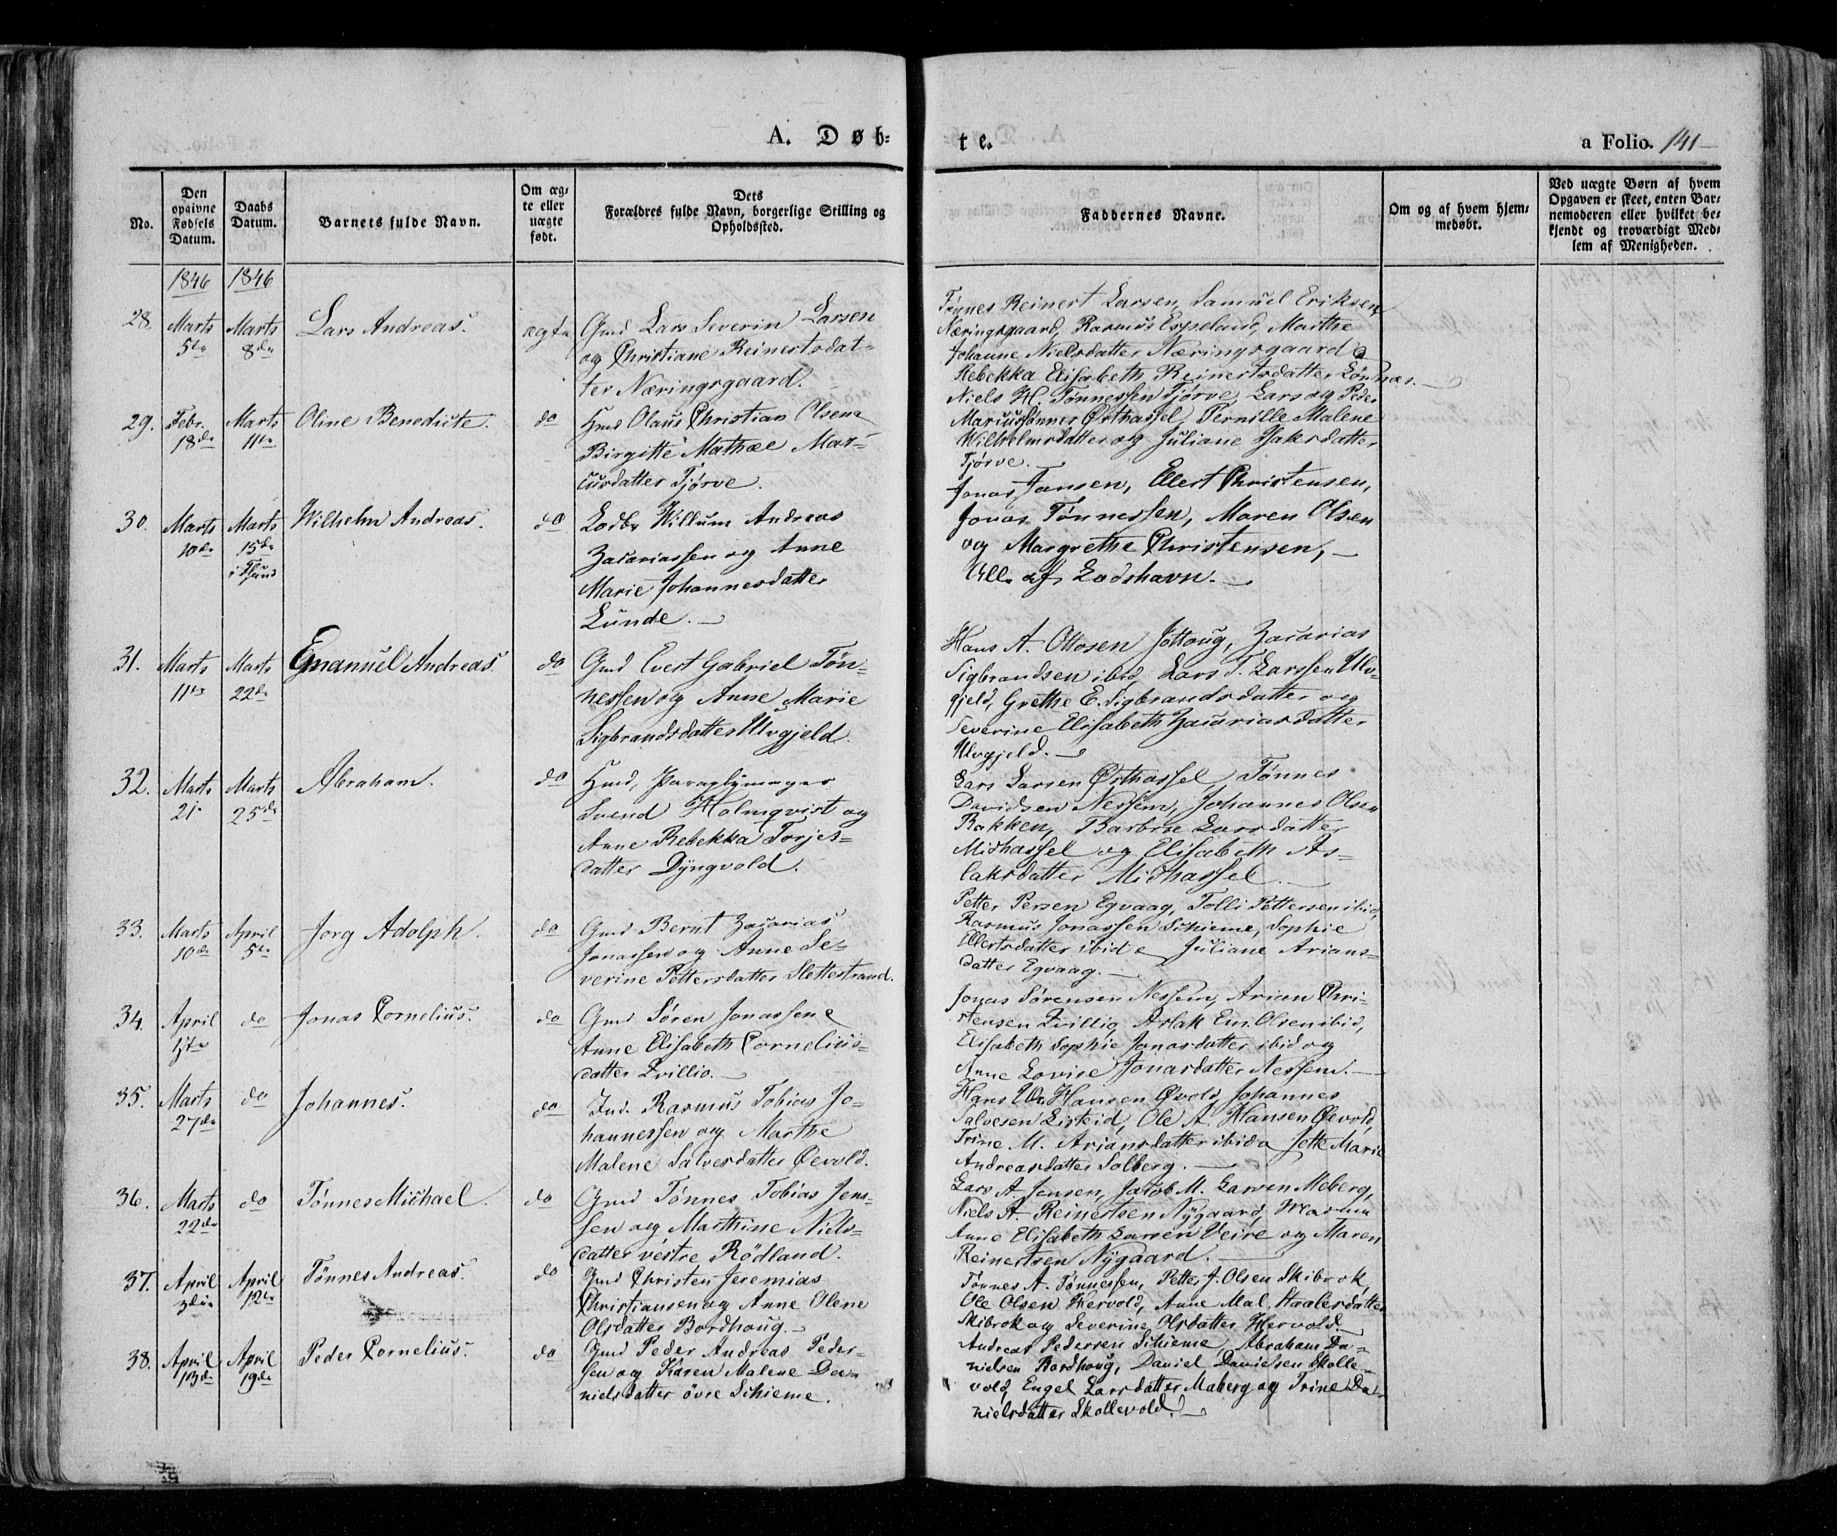 A. Døb-
te.
a Folio. 141
No.
Den opgivne Fødsels Datum.
Daabs Datum.
Barnets fulde Navn.
Om ægte eller uægte født.
Dets Forældres fulde Navn, borgerlige Stilling og Opholdssted.
Faddernes Navne.
Om og af hvem hjemmedøbt.
Ved uægte Børn af hvem Opgaven er skeet, enten Barnemoderen eller hvilket bekjendt og troværdigt Medlem af Menigheden.
1846 1846
28. Marts 5te Marts 8de Lars Andreas. ægte
Gmd Lars Severin Larsen
og Christiane Reinertsdat-
ter Næringsgaard.
Tønnes Reinert Larsen, Samuel Eriksen
Næringsgaard, Rasmus Espeland, Marthe
Johanne Nielsdatter Næringsgaard
Rebekka Elisabeth Reinertsdatter
29. Febr. 18de Marts 11te Oline Benedicte. do
Hmd Olaus Christian Olsen
Birgitte Mathæe Mar-
cusdatter Tjørve.
Niels H. Tønnessen Tjørve, Lars og Peder
Mariussønner Østhassel, Pernille Malene
Wilhelmsdatter og Juliane Isaksdatter
Tjørve.
30. Marts 10de Marts 15de i Huus Wilhelm Andreas. do
Lods Willum Andreas
Zacariassen og Anne
Marie Johannesdatter
Lunde.
Jonas Jansen, Ellert Christensen,
Jonas Tønnessen, Maren Olsen
og Margrethe Christensen,
Alle af Lodshavn.
31. Marts 11te Marts 22de Emanuel Andreas. do
Gmd Evert Gabriel Tøn-
nessen og Anne Marie
Sigbrandsdatter Ulvgjeld.
Hans A. Ottosen Jottoug, Zacarias
Sigbrandsen ibid, Lars T. Larssen Ulv-
gjeld, Grethe E. Sigbrandsdatter og
Severine Elisabeth Zacariasdatter
Ulvgjeld.
32. Marts 21. Marts 25de Abraham. do
Hmd, Paraplymager
Svend Holmqvist og
Anne Rebekka Torjes-
datter Dyngvold.
Lars Larsen Østhassel, Tønnes
Davidsen Nessem, Johannes Olsen
Bakken, Barbroe Larsdatter
Midhassel og Elisabeth As-
laksdatter Midhassel.
33. Marts 10de April 5te Jørg Adolph. do
Gmd Bernt Zacarias
Jonassen og Anne Se-
verine Pettersdatter Slettestrand.
Petter Persen Egvaag, Tolli Pettersen ibid,
Rasmus Jonassen Schieme, Sophie
Ellertsdatter ibid & Juliane Arians-
datter Egvaag.
34. April 1ste do Jonas Cornelius. do
Gmd Søren Jonassen &
Anne Elisabeth Cornelius-
datter Qvillio.
Jonas Sørensen Nessem, Arian Chri-
stensen Qvillig Aslak Em. Olsen ibid,
Elisabeth Sophie Jonasdatter ibid og
Anne Lovise Jonasdatter Nessem.
35. Marts 27de do Johannes. do
Ind. Rasmus Tobias Jo-
hannessen og Marthe
Malene Salvesdatter Øevold.
Hans Hansen Øvold, Johannes
Salvesen Listeid, Ole A. Hansen Øevold,
Trine M. Ariansdatter ibid & Jette Marie
Andreasdatter Solberg.
36. Marts 22de do Tønnes Michael. do
Gmd Tønnes Tobias Jens-
sen og Marthine Niels-
datter vestre Rødland.
Lars A. Jensen, Jacob M. Larsen Meberg,
Niels A. Reinertsen Nygaard,
Anne Elisabeth Larsen Veire og Maren
Reinertsen Nygaard.
37. April 3die April 12te Tønnes Andreas. do
Gmd Christen Jeremias
Christiansen og Anne Olene
Olsdatter Bordhoug.
Tønnes A. Tønnessen, Petter J. Olsen Skibrok
Ole Olsen Hervold, Anne Mal. Staalesdatter
Skibrok og Severine Olsdatter Hervold.
38. April 13de April 19de Peder Cornelius. do
Gmd Peder Andreas Peder-
sen og Karen Malene Da-
nielsdatter øvre Schieme.
Andreas Pedersen Schieme, Abraham Da-
nielsen Bordhoug, Daniel Davidsen Skolle-
vold, Engel Larsdatter Maberg og Trine Da-
nielsdatter Skollevold.